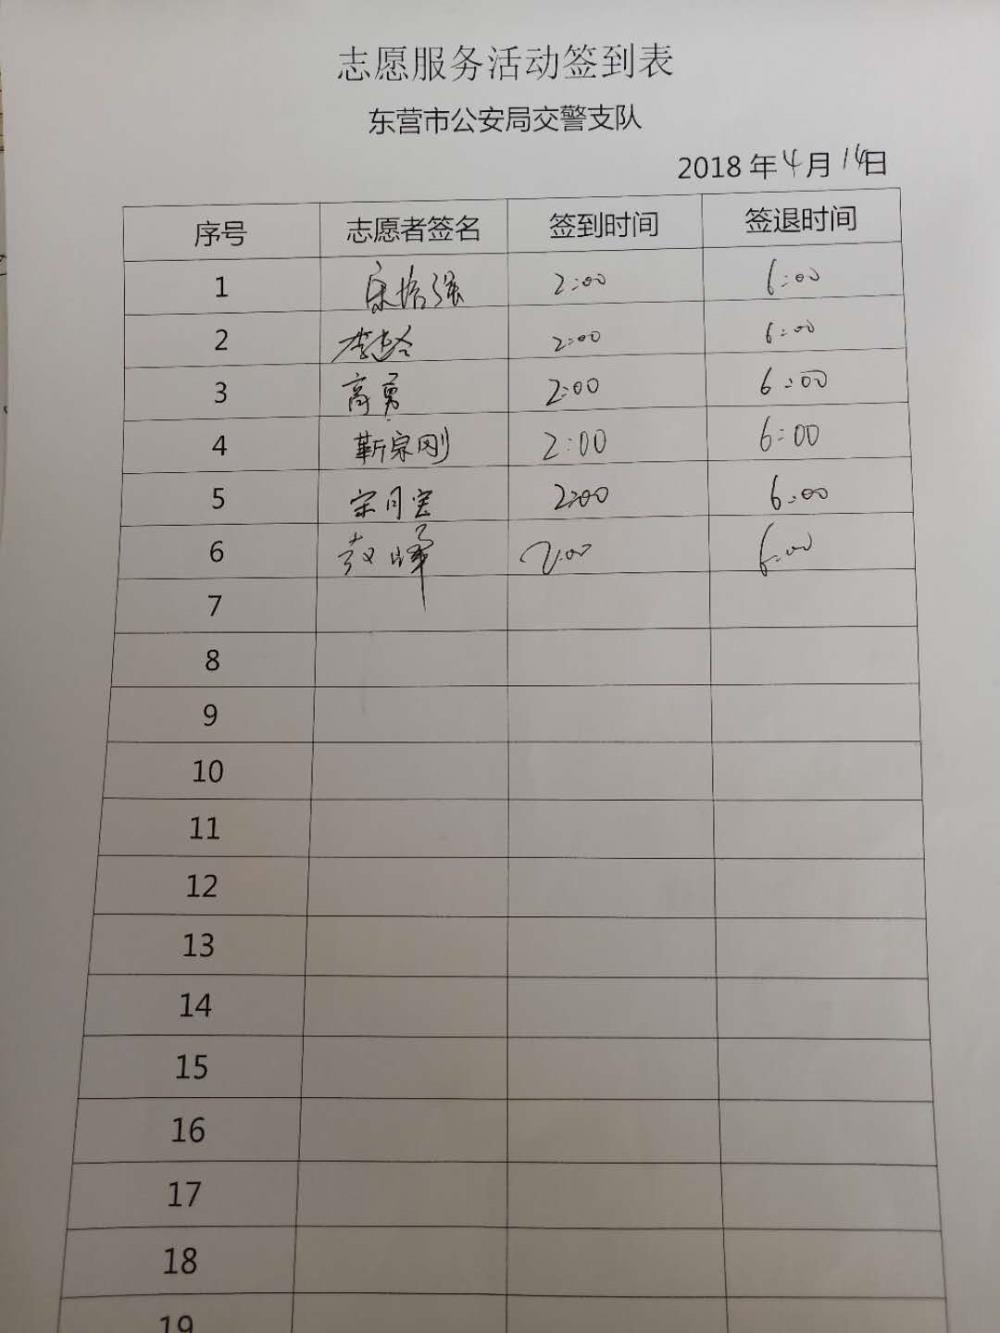 志愿服务活动签到表
东营市公安局交警支队
2018年4月14日
序号 志愿者签名 签到时间 签退时间
1 2:00 6:00
2 2:00 6:00
3 高勇 2:00 6:00
4 靳宗刚 2:00 6:00
5 宋月宝 2:00 6:00
6 赵峰 2:00 6:00
7
8
9
10
11
12
13
14
15
16
17
18
19